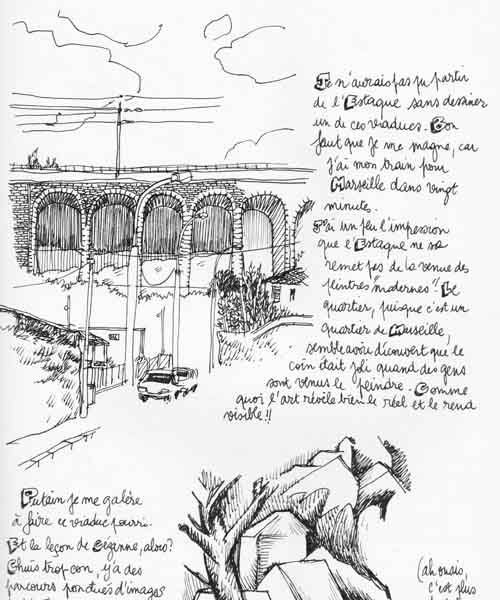 Je n'aurais pas pu partir
de l'Estaque sans dessiner
un de ces viaducs. Bon
faut que je me magne, car
j'ai mon train pour
Marseille dans vingt
minutes.
J'ai un peu l'impression
que l'Estaque ne se
remet pas de la venue des
peintres "modernes". Le
quartier, puisque c'est un
quartier de Marseille,
semble avoir découvert que le
coin était joli quand des gens
sont venus le peindre. Comme
quoi l'art révèle bien le réel et le rend
visible!!
Putain je me galère
à faire ce viaduc pourri.
Et la leçon de Cézanne, alors?
Chuis trop con, y'a des
parcours ponctués d'images
(ah ouais,
c'est plus